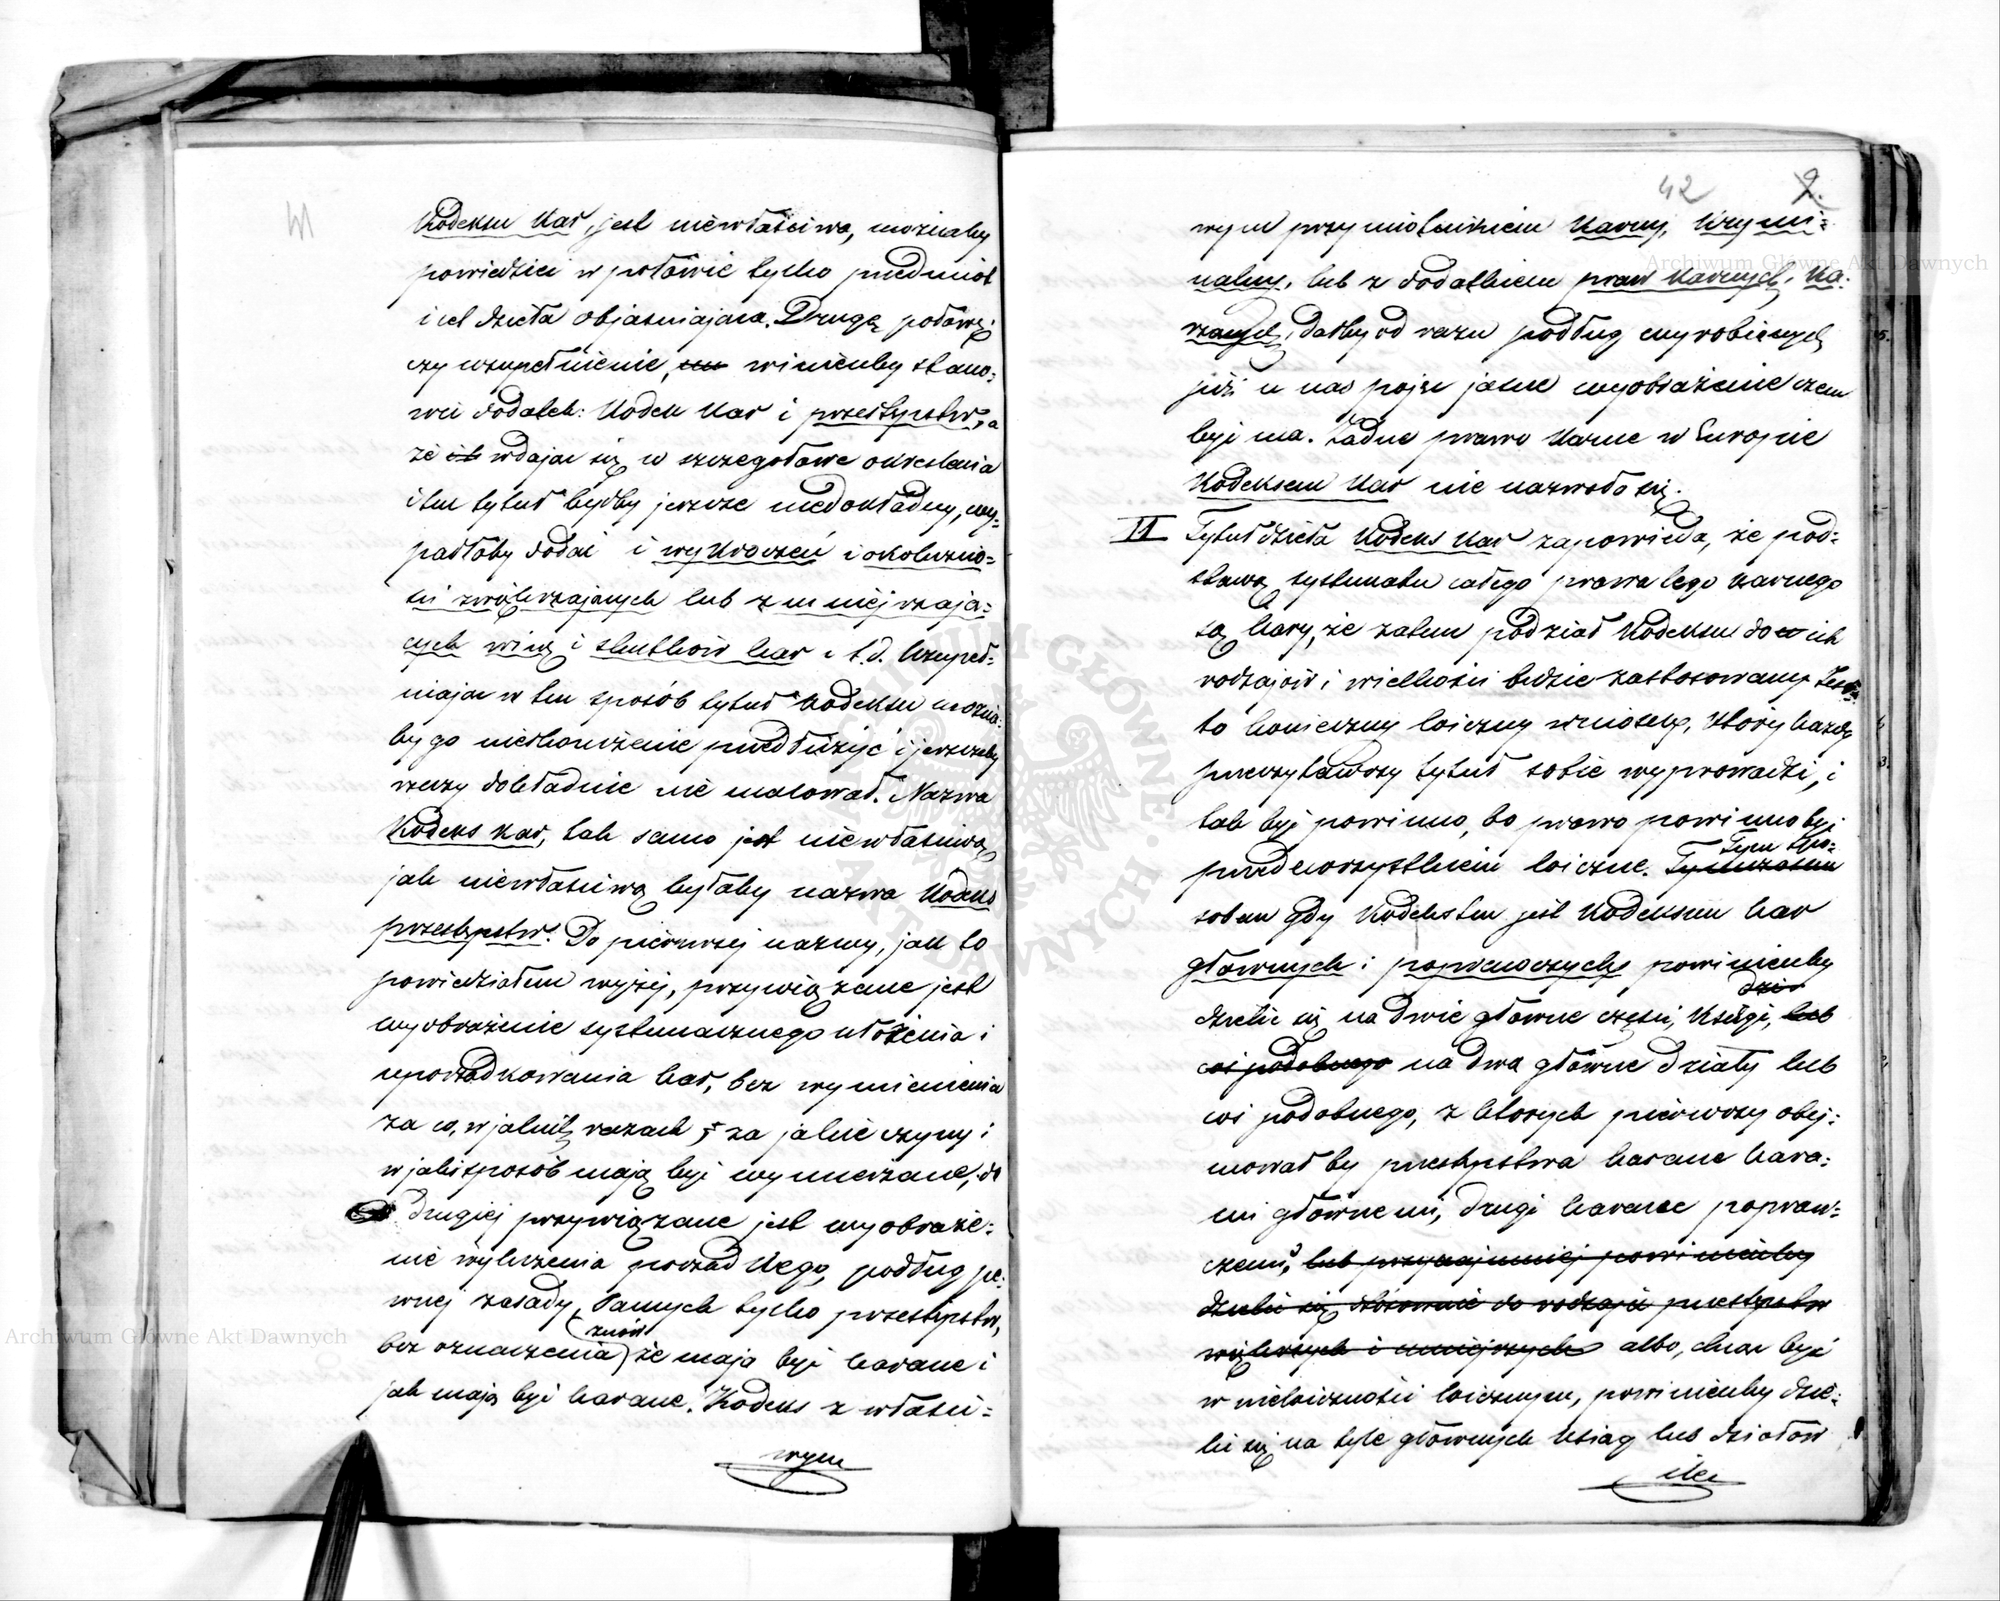 Kodeksu Kar, jest niewłaściwa, możnaby
powiedzieć w połowie tylko przedmiot
i cel dzieła objaśniająca. Drugą połowę,
czy uzupełnienie, winienby stano=
wić dodatek: Kodex Kar i przestępstw, a
że wdając się w szczegółowe określenia
i ten tytuł byłby jeszcze niedokładny, wy=
padłoby dodać i wykroczeń i okoliczno=
ści zwiększających lub zmniejszają=
cych winę i skutków kar i t.d. Uzupeł=
niając w ten sposób tytuł Kodeksu można
by go nieskończenie przedłużyć i jeszczeby
rzeczy dokładnie nie malował. Nazwa
Kodeks kar, tak samo jest niewłaściwą
jak niewłaściwą byłaby nazwa Kodeks
przestępstw. Do pierwszej nazwy, jak to
powiedziałem wyżej, przywiązane jest
wyobrażenie systematycznego ułożenia i
uporządkowania kar, bez wymienienia
za co, w jakich razach, za jakie czyny i
w jaki sposób mają być wymierzane, do
drugiej przywiązane jest wyobraże=
nie wyliczenia porządkiego, podług pe=
wnej zasady, samych tylko przestępstw,
bez oznaczenia (znów) że mają być karane i
jak mają być karane. Kodeks z właści=
wym
42 2.
wym przymiotnikiem Karny, Krymi=
nalny, lub z dodatkiem praw karnych, Ka=
rzących, dałby od razu podług wyrobionych
już u nas pojęć jasne wyobrażenie czem
być ma. Żadne prawo karne w Europie
Kodeksem Kar nie nazwało się.
II Tytuł dzieła Kodeks Kar zapowiada, że pod=
stawą systematu całego prawa tego karnego
są kary, że zatem podział Kodeksu do ich
rodzajów i wielkości będzie zastosowany. Jest
to konieczny loiczny wniosek, który każdy
przeczytawszy tytuł sobie wyprowadzi, i
tak być powinno, bo prawo powinno być
przedewszystkiem loiczne. Tymczasem Tym spo=
sobem gdy Kodeks ten jest Kodeksem kar
głównych i poprawczych, powinienby
dzielić się na dwie główne części, Księgi, lub
coś podobnego na dwa główne działy lub
coś podobnego, z których pierwszy obej=
mowałby przestępstwa karane kara=
mi głównemi, drugi karane popraw=
czemi, lub przynajmniej powinienby
dzielić się stósownie do rodzaju przestępstw
większych i mniejszych albo, chcąc być
w nieloiczności loicznym, powinienby dzie=
lić się na tyle głównych Ksiąg lub działów
ile
Archiwum Główne Akt Dawnych
Archiwum Główne Akt Dawnych
ARCHIWUM GŁÓWNE AKT DAWNYCH